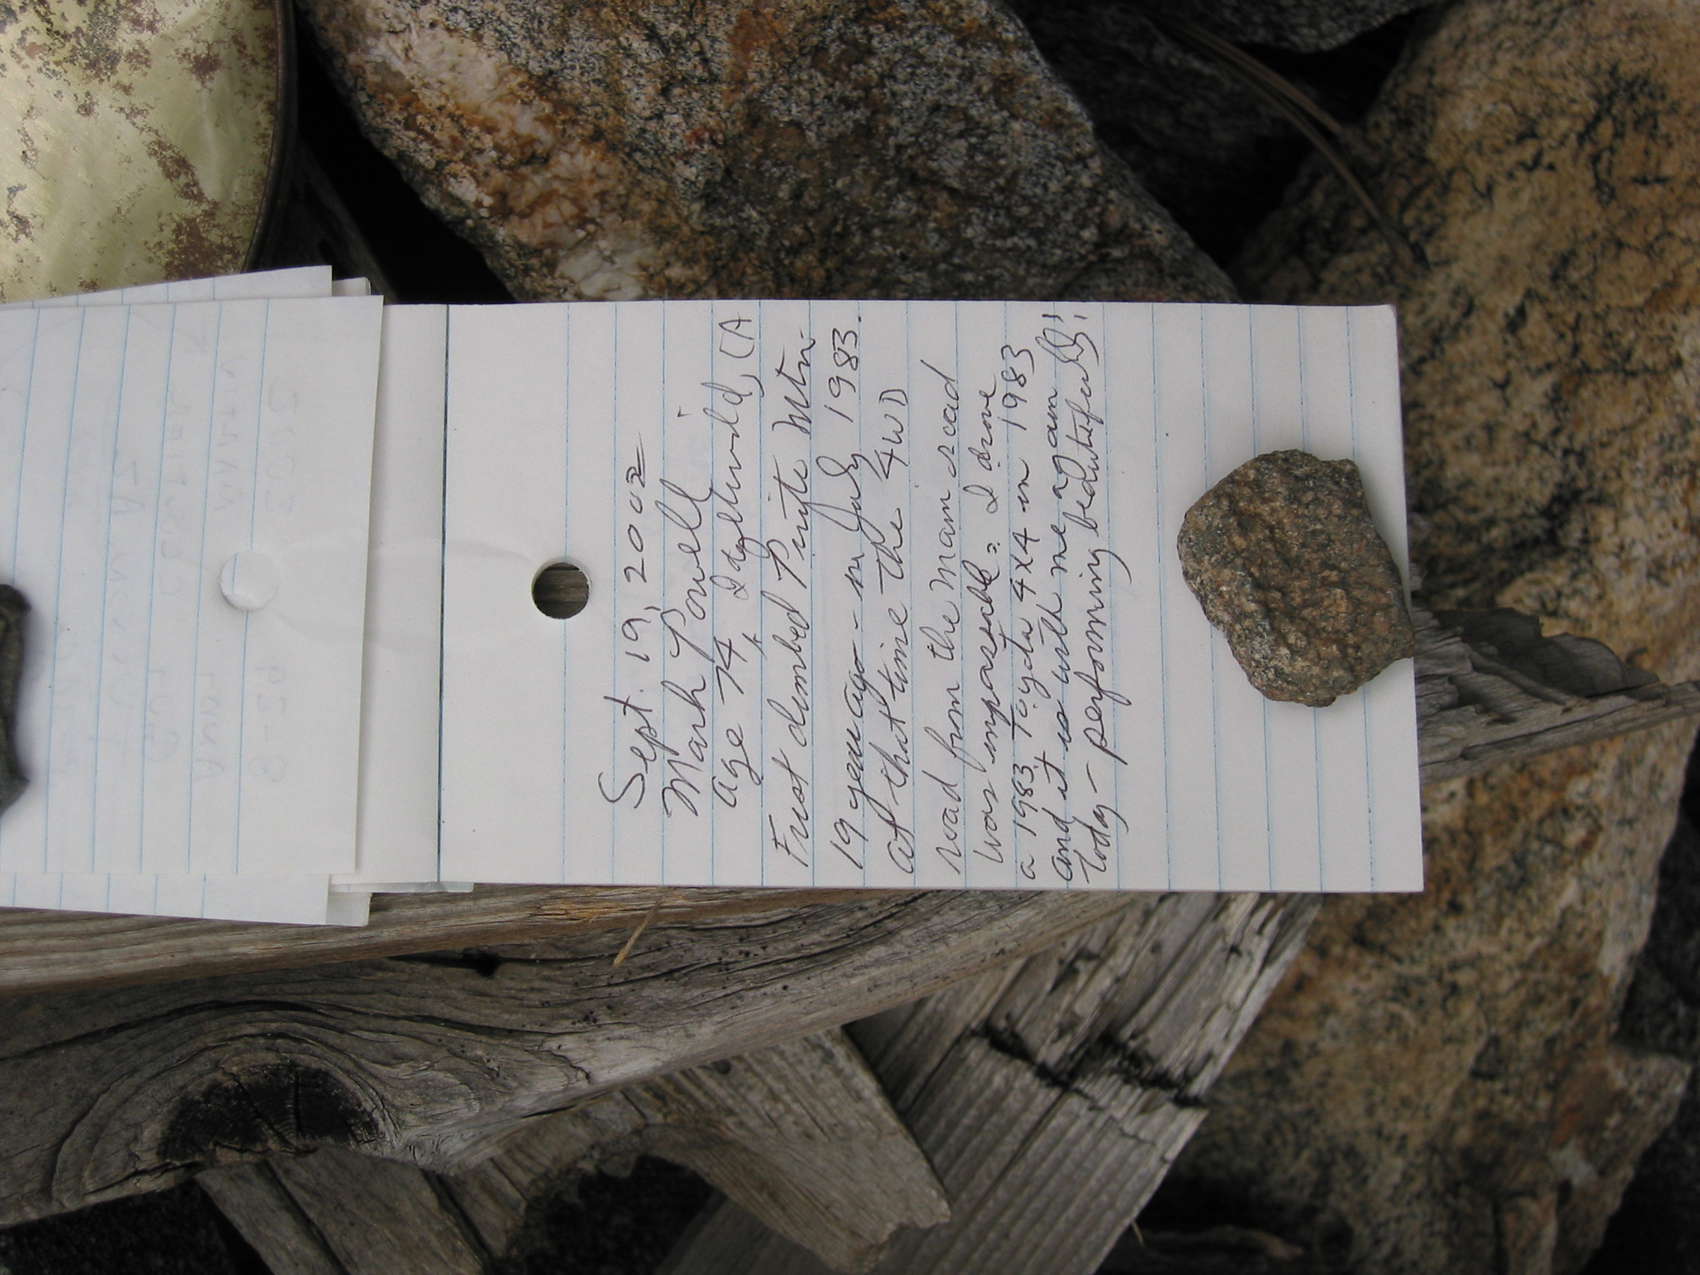 Sept. 19, 2002
Mark Powell
age 74, Idyllwild, CA
First climbed Piute Mtn
19 years ago - in July 1983.
At that time the 4WD
road from the main road
was impassable. I drove
a 1983 Toyota 4X4 in 1983
and it is with me again
today - performing beautifully!